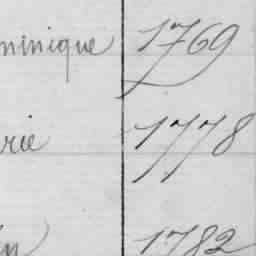 minique 1769
rie 1778
1782